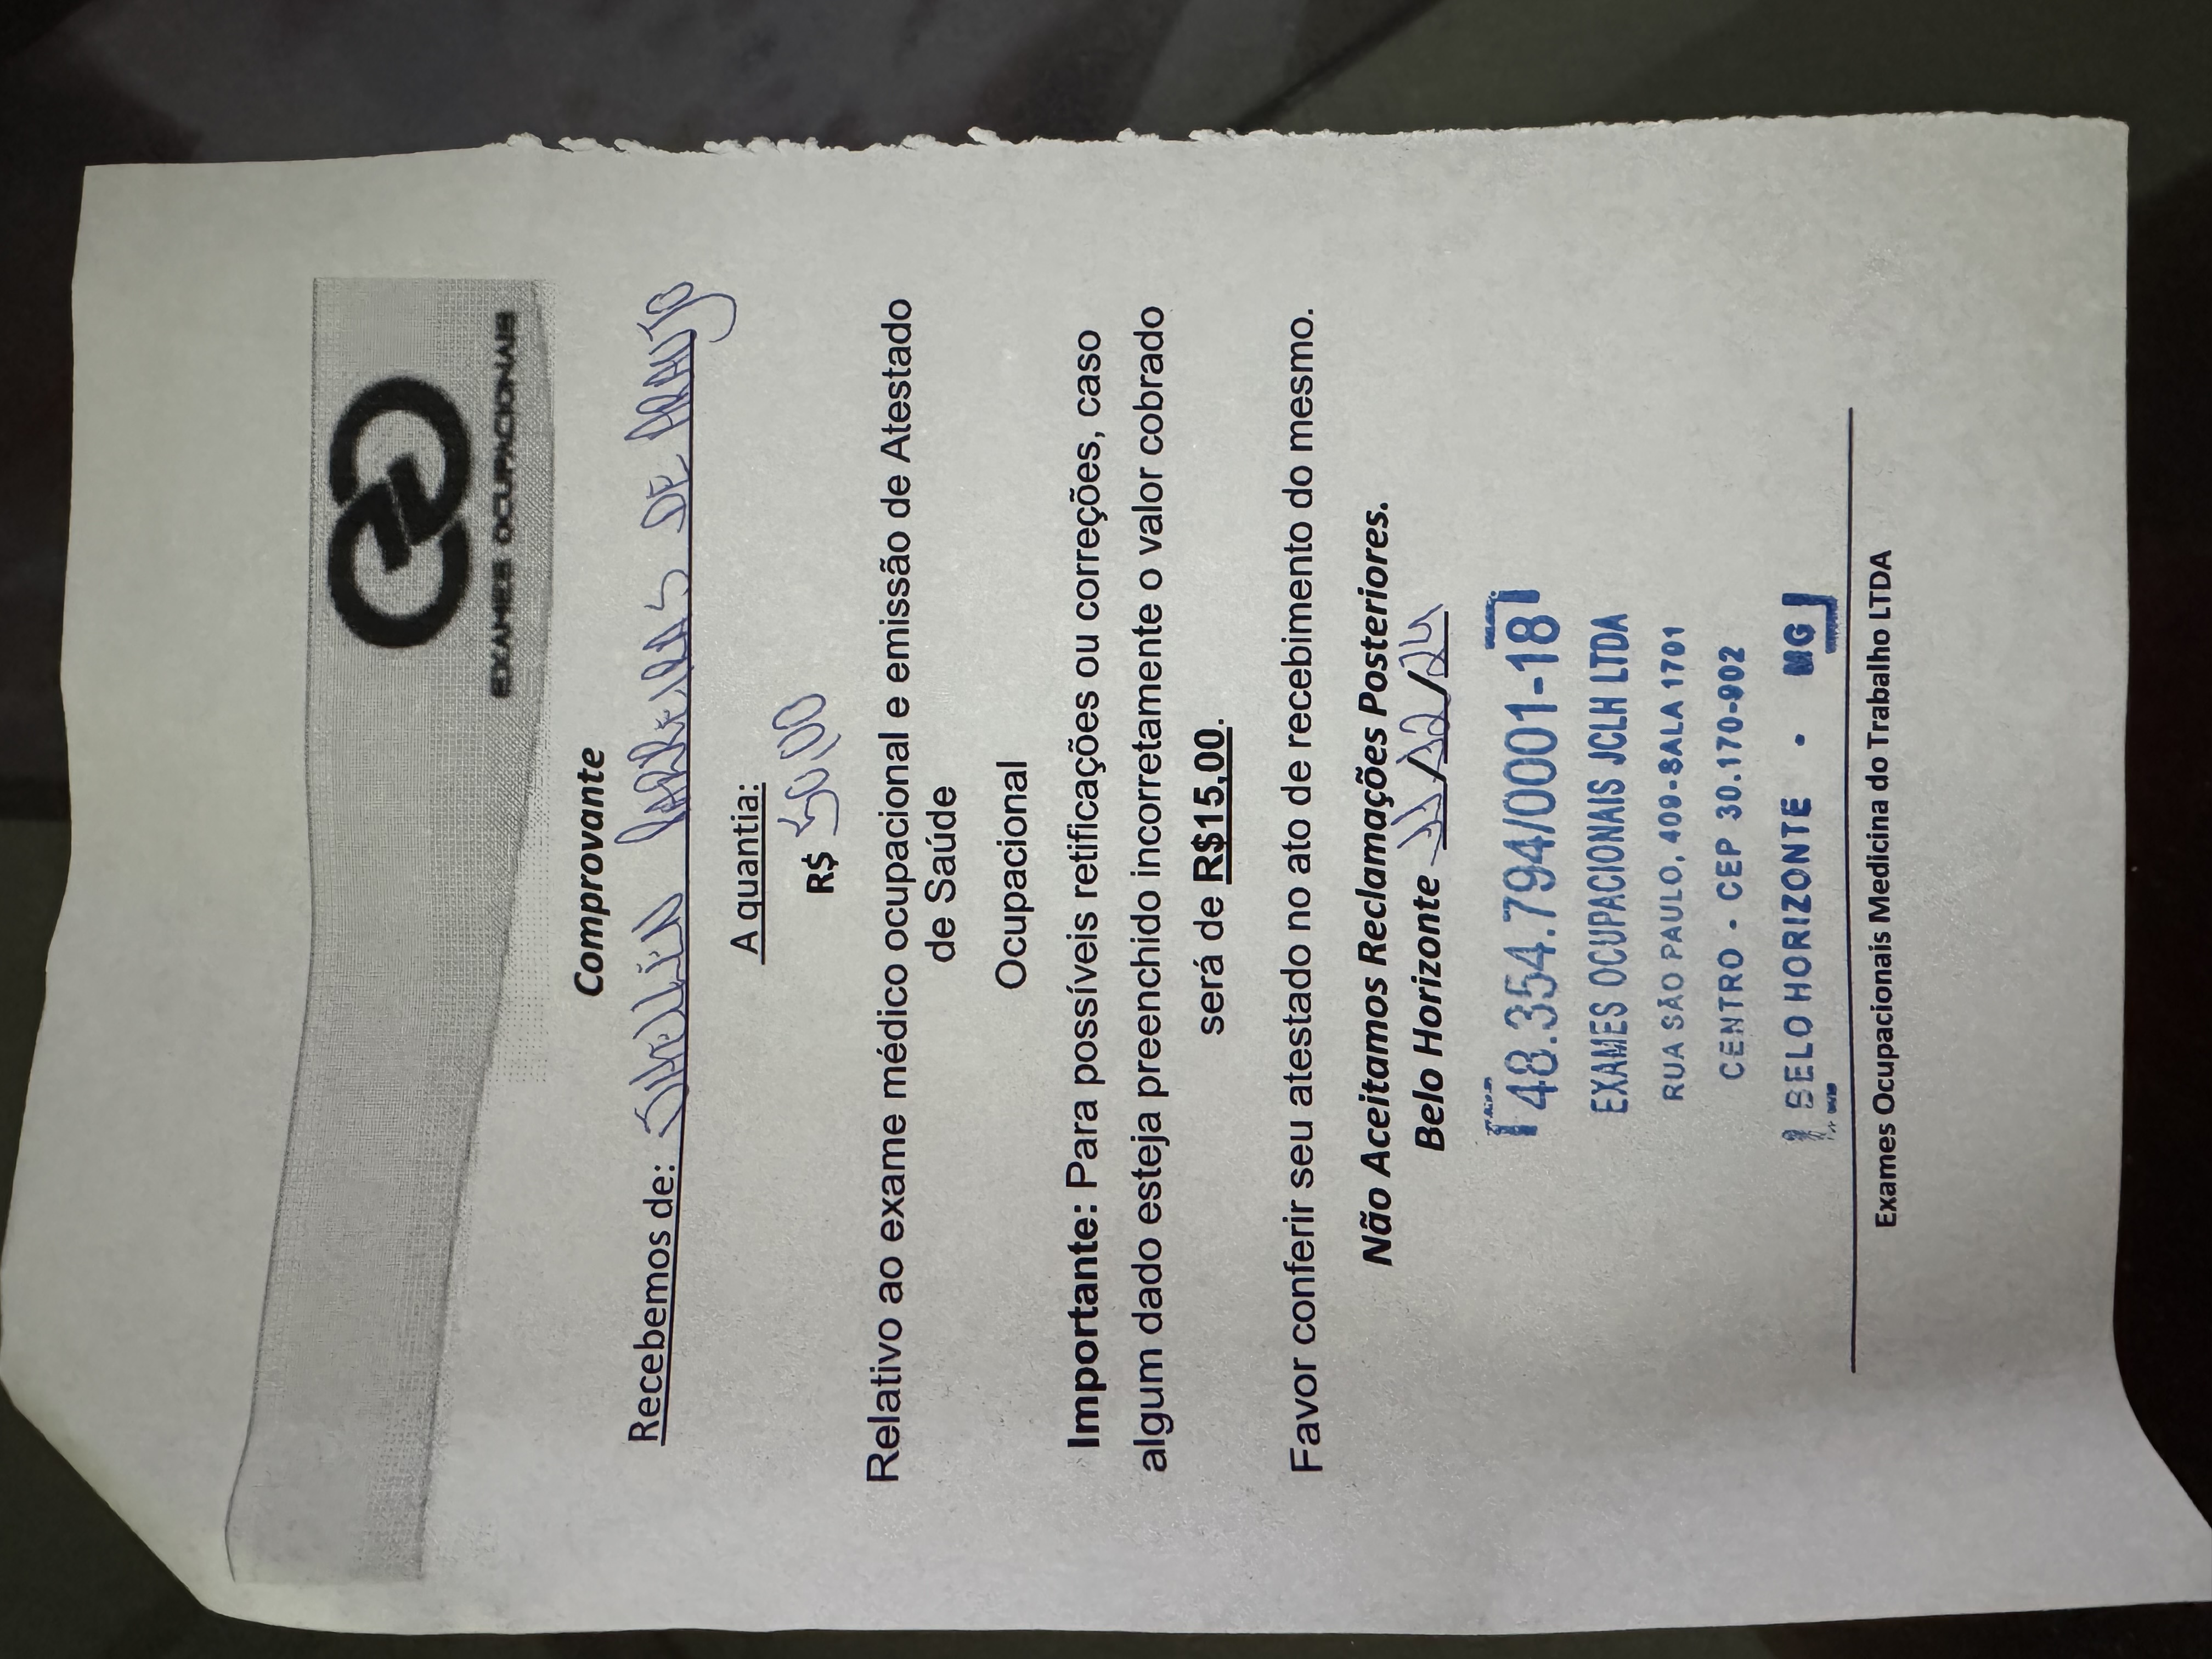 EXAMES OCUPACIONAIS
Comprovante
Recebemos de: SHELLEN PARREIRAS DE ARAUJO
A quantia:
R$ 50,00
Relativo ao exame médico ocupacional e emissão de Atestado
de Saúde
Ocupacional
Importante: Para possíveis retificações ou correções, caso
algum dado esteja preenchido incorretamente o valor cobrado
será de R$15,00.
Favor conferir seu atestado no ato de recebimento do mesmo.
Não Aceitamos Reclamações Posteriores.
Belo Horizonte 11/12/24
48.354.794/0001-18
EXAMES OCUPACIONAIS JCLH LTDA
RUA SÃO PAULO, 409-SALA 1701
CENTRO - CEP 30.170-902
BELO HORIZONTE - MG
Exames Ocupacionais Medicina do Trabalho LTDA